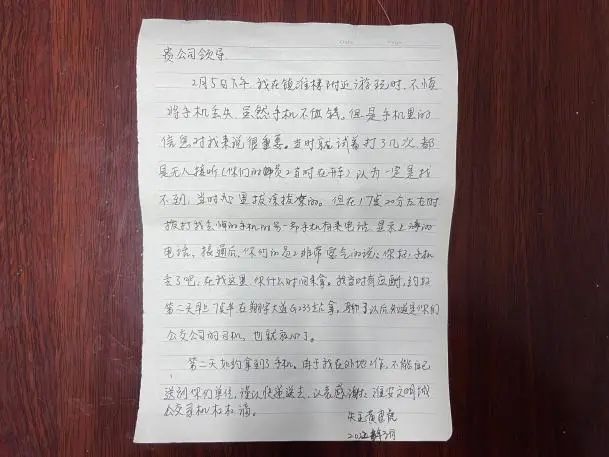 Date Page
贵公司领导
2月5日下午,我在镇淮楼附近游玩时,不慎
将手机丢失,虽然手机不值钱,但是手机里的
信息对我来说很重要。当时就试着打了几次,都
是无人接听(你们的员工当时在开车)认为一定是找
不到,当时心里拔凉拔凉的。但在17点20分左右时
拨打我丢掉的手机的另一部手机有来电话,显示上海的
电话,接通后,你们的员工非常客气的说:你好,手机
丢了吧,在我这里,你什么时间来拿。我当时有应酬,约好
第二天早上7点半在翔宇大道G233站拿,聊了以后知道是你们
公交公司的司机,也就放心了。
第二天如约拿到了手机,由于我在外地工作,不能自己
送到你们单位,谨以快递送去,以表感谢,淮安文明城
公交司机杠杠滴。
失主黄